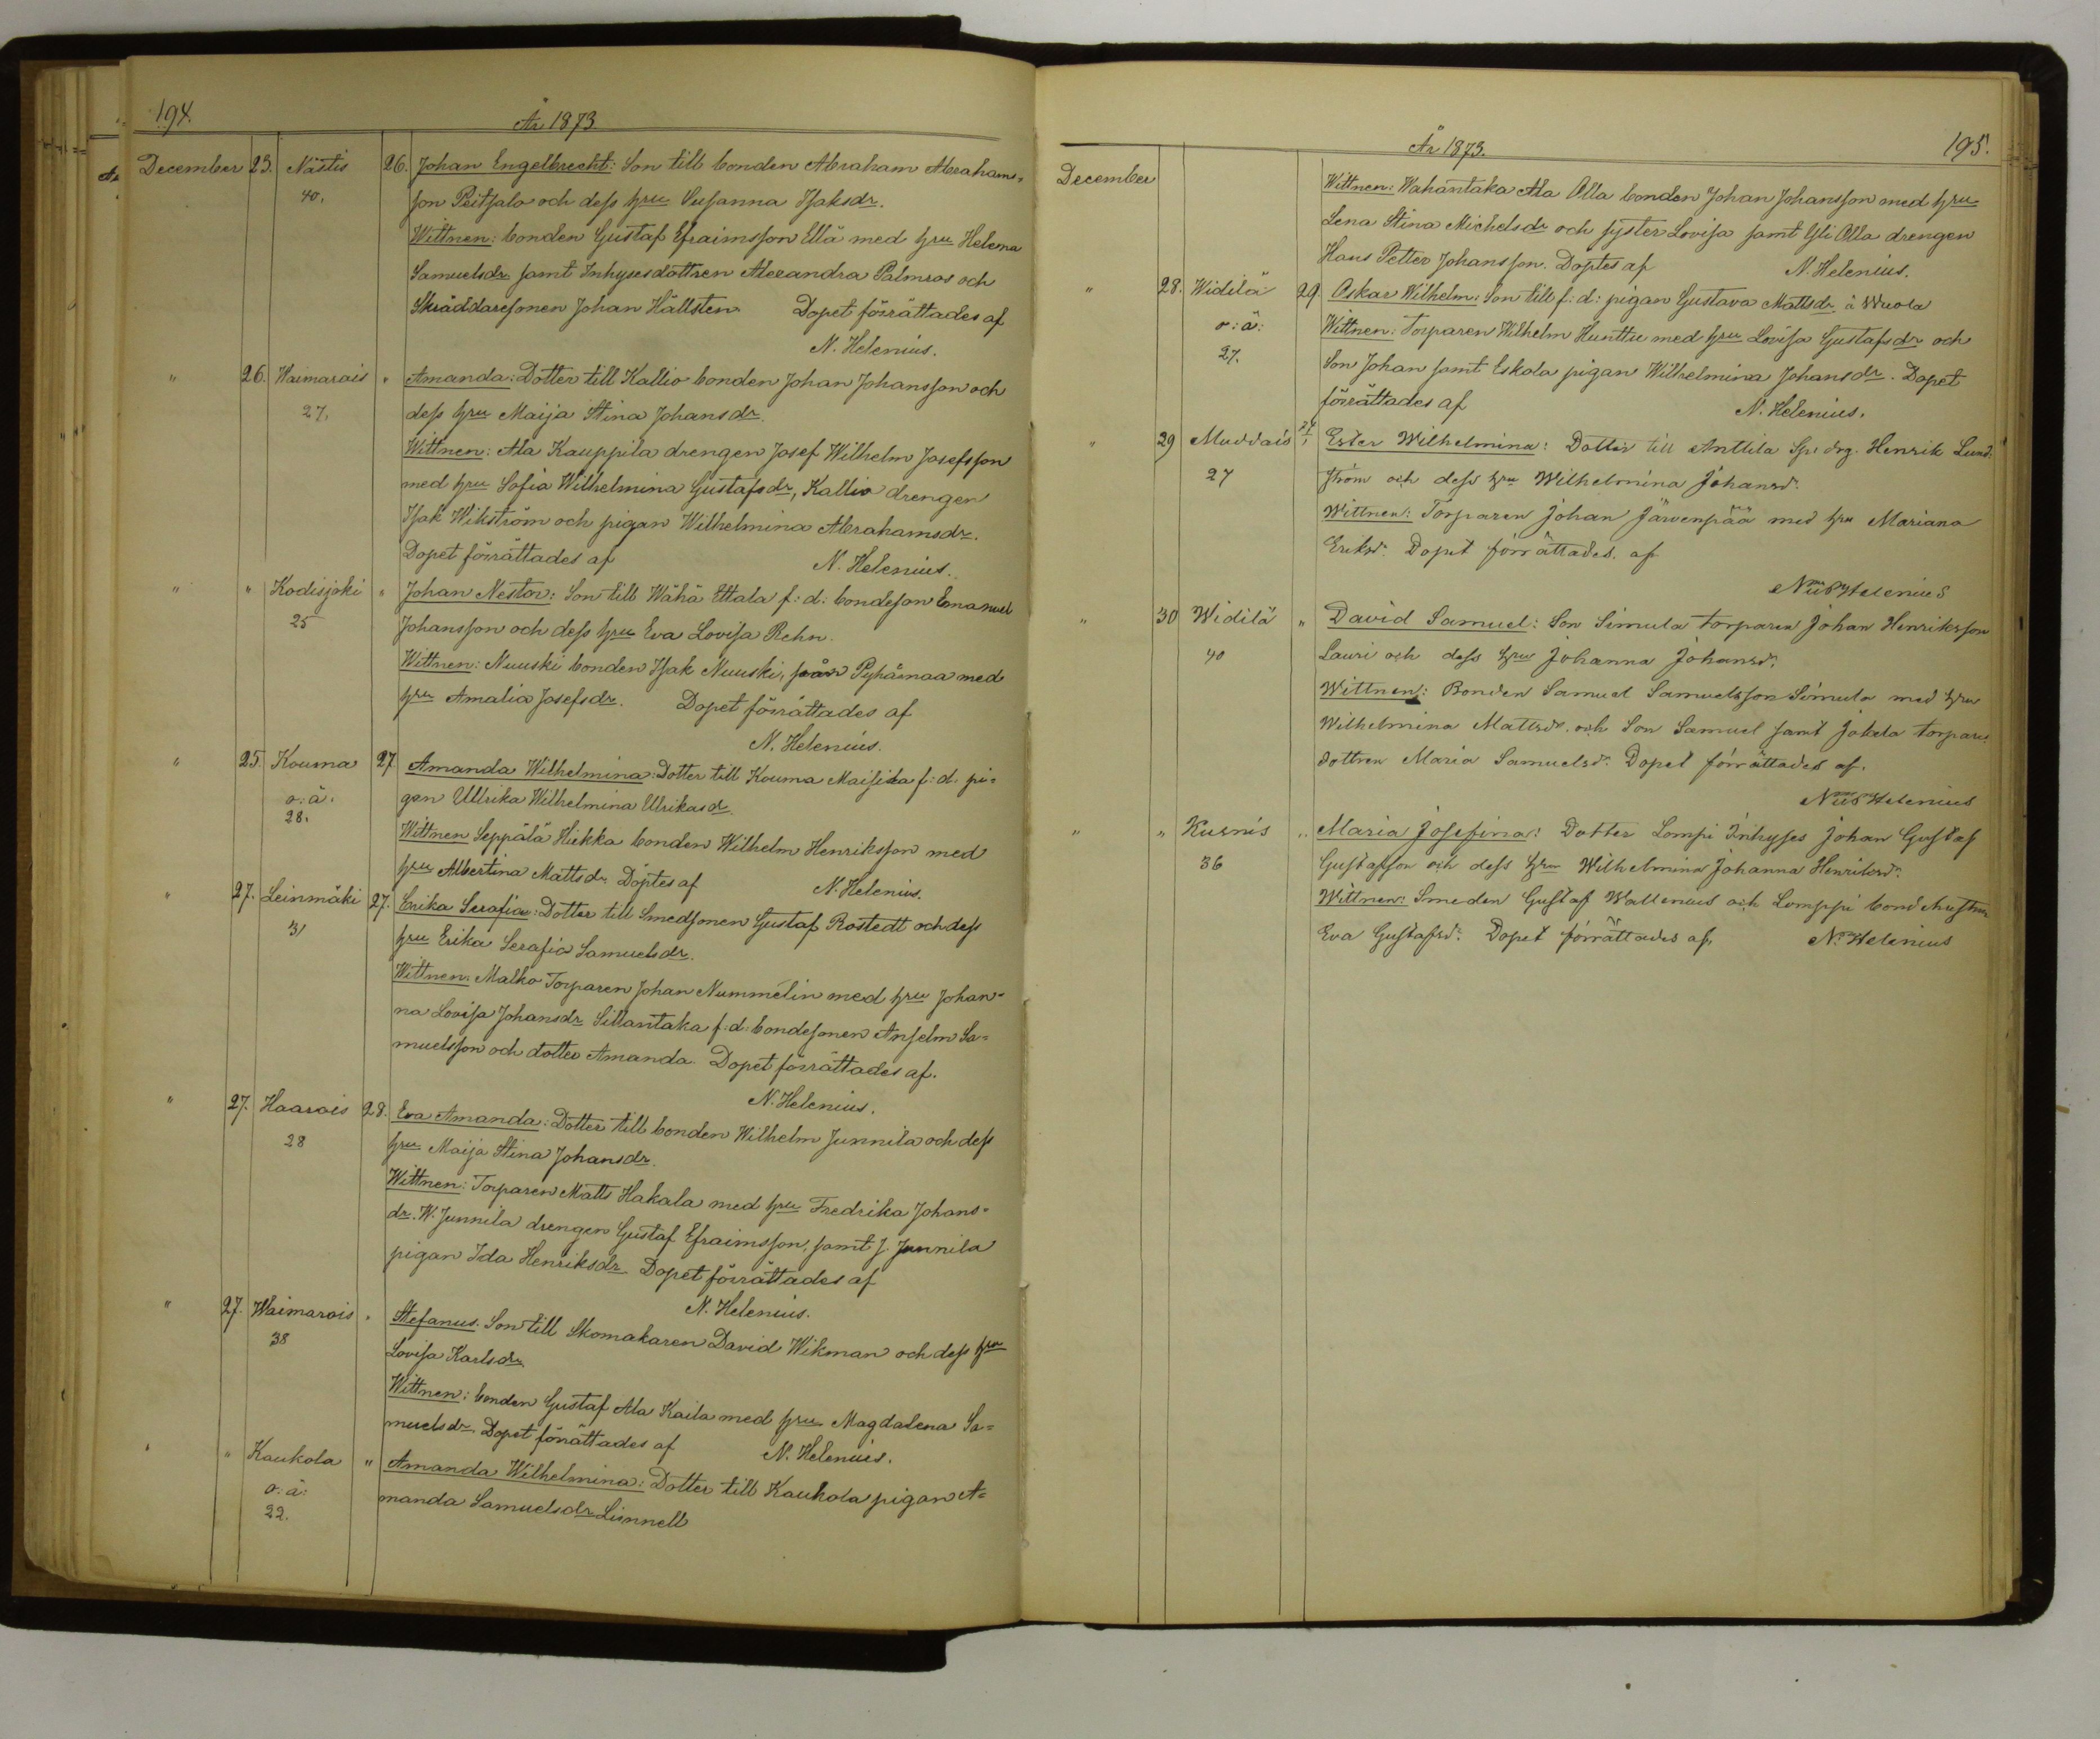 194.
År 1873.
December 23. Nästis 26. Johan Engelbrecht: Son till bonden Abraham Abrahams-
40. son Peitsalo och dess hru Susanna Isaksdr.
Wittnen: bonden Gustaf Efraimsson Ellä med hru Helena
Samuelsdr samt Inhysesdottren Alexandra Palmros och
Skräddaresonen Johan Hällsten Dopet förrättades af
N. Helenius.
" 26. Waimarais " Amanda: Dotter till Kallio bonden Johan Johansson och
27. dess hru Maija Stina Johansdr.
Wittnen: Ala Kauppila drengen Josef Wilhelm Josefsson
med hru Sofia Wilhelmina Gustafsdr, Kallio drengen
Isak Wikström och pigan Wilhelmina Abrahamsdr.
Dopet förrättades af N. Helenius.
" " Kodisjoki " Johan Nestor: Son till Wähä Ettala f: d: bondeson Emanuel
25 Johansson och dess hru Eva Lovisa Rehn.
Wittnen: Nuuski bonden Isak Nuuski, från Pyhämaa med
hru Amalia Josefsdr. Dopet förrättades af
N. Helenius.
" 25. Kouma 27 Amanda Wilhelmina: Dotter till Kouma Maisila f: d: pi-
o: ä: gan Ullrika Wilhelmina Ulrikasdr.
28. Wittnen Seppälä Hiekka bonden Wilhelm Henriksson med
hru Albertina Mattsdr. Döptes af N. Helenius.
" 27. Leinmäki 27. Erika Serafia: Dotter till Smedsonen Gustaf Rostedt och dess
31 hru Erika Serafia Samuelsdr.
Wittnen. Malko Torparen Johan Nummelin med hru Johan-
na Lovisa Johansdr Sillantaka f: d: bondesonen Anselm Sa-
muelsson och dotter Amanda. Dopet förrättades af.
N. Helenius.
" 27. Haarois 28. Eva Amanda: Dotter till bonden Wilhelm Junnila och dess
28 hru Maija Stina Johansdr.
Wittnen: Torparen Matts Hakala med hru Fredrika Johans-
dr. W. Junnila drengen Gustaf Efraimsson, samt J. Junnila
pigan Ida Henriksdr Dopet förrättades af
N. Helenius.
" 27. Waimarois " Stefanus. Son till Skomakaren David Wikman och dess hru
38 Lovisa Karlsdr.
Wittnen: bonden Gustaf Ala Kaila med hru Magdalena Sa-
muelsdr. Dopet förrättades af N. Helenius.
" " Kaukola " Amanda Wilhelmina: Dotter till Kaukola pigan A-
o: ä: manda Samuelsdr Linnell
22.
År 1873. 195.
December Wittnen: Wahantaka Ala Olla bonden Johan Johansson med hru
Lena Stina Michelsdr och syster Lovisa samt Yli Olla drengen
Hans Petter Johansson. Döptes af N. Helenius.
" 28. Widilä 29. Oskar Wilhelm: Son till f: d: pigan Gustava Mattsdr. å Wuola
o: ä: Wittnen: Torparen Wilhelm Hunttu med hru Lovisa Gustafsdr och
27. Son Johan samt Eskola pigan Wilhelmina Johansdr. Dopet
förrättades af N. Helenius.
" 29 Muddais Ester Wilhelmina: Dotter till Anttila Sp: drg. Henrik Lund-
27 ström och dess hru Wilhelmina Johansdr.
Wittnen: Torparen Johan Järvenpää med hru Mariana
Eriksdr. Dopet förrättades. af
Nils Helenius
" 30 Widilä " David Samuel: Son Simula torparen Johan Henriksson
40 Lauri och dess hru Johanna Johansdr.
Wittnen: Bonden Samuel Samuelsson Simula med hru
Wilhelmina Mattsdr. och Son Samuel samt Jokela torpare
dottren Maria Samuelsdr. Dopet förrättades af.
Nils Helenius
" " Kusnis " Maria Josefina: Dotter Lompi Inhyses Johan Gustaf
36 Gustafsson och dess hru Wilhelmina Johanna Henriksdr.
Wittnen: Smeden Gustaf Wallenius och Lomppi bond hustru
Eva Gustafsdr. Dopet förrättades af, N. Helenius